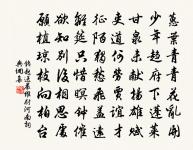 蕙葉青青花亂開
少年趨府下蓬萊
甘泉未獻揚雄賦
吏道何勞賈誼才
征陌獨愁飛蓋遠
離筵只惜暝鐘催
欲知別後相思處
願植瓊枝向柏臺
錢起送嚴維尉河南詞
典網集